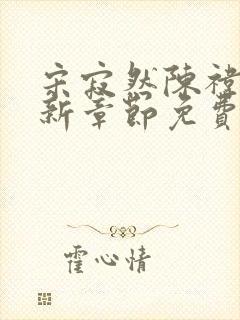 宋寂然陳禕
新章節免費
霍心情